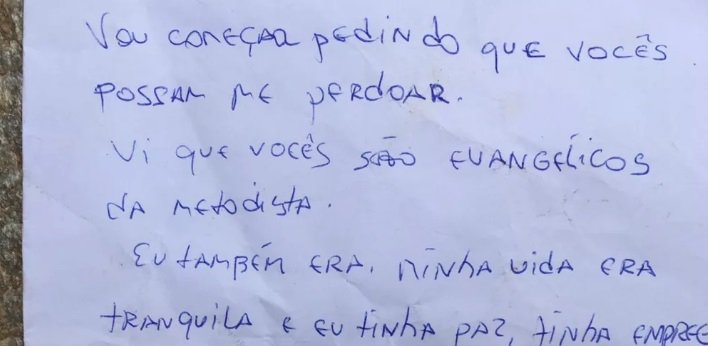 Vou COMEÇAR PEDINDO QUE VOCÊS
POSSAM ME PERDOAR.
Vi QUE VOCÊS SÃO EVANGÉLICOS
DA METODISTA.
EU TAMBÉM ERA, MINHA VIDA ERA
TRANQUILA E EU TINHA PAZ, TINHA EMPREG